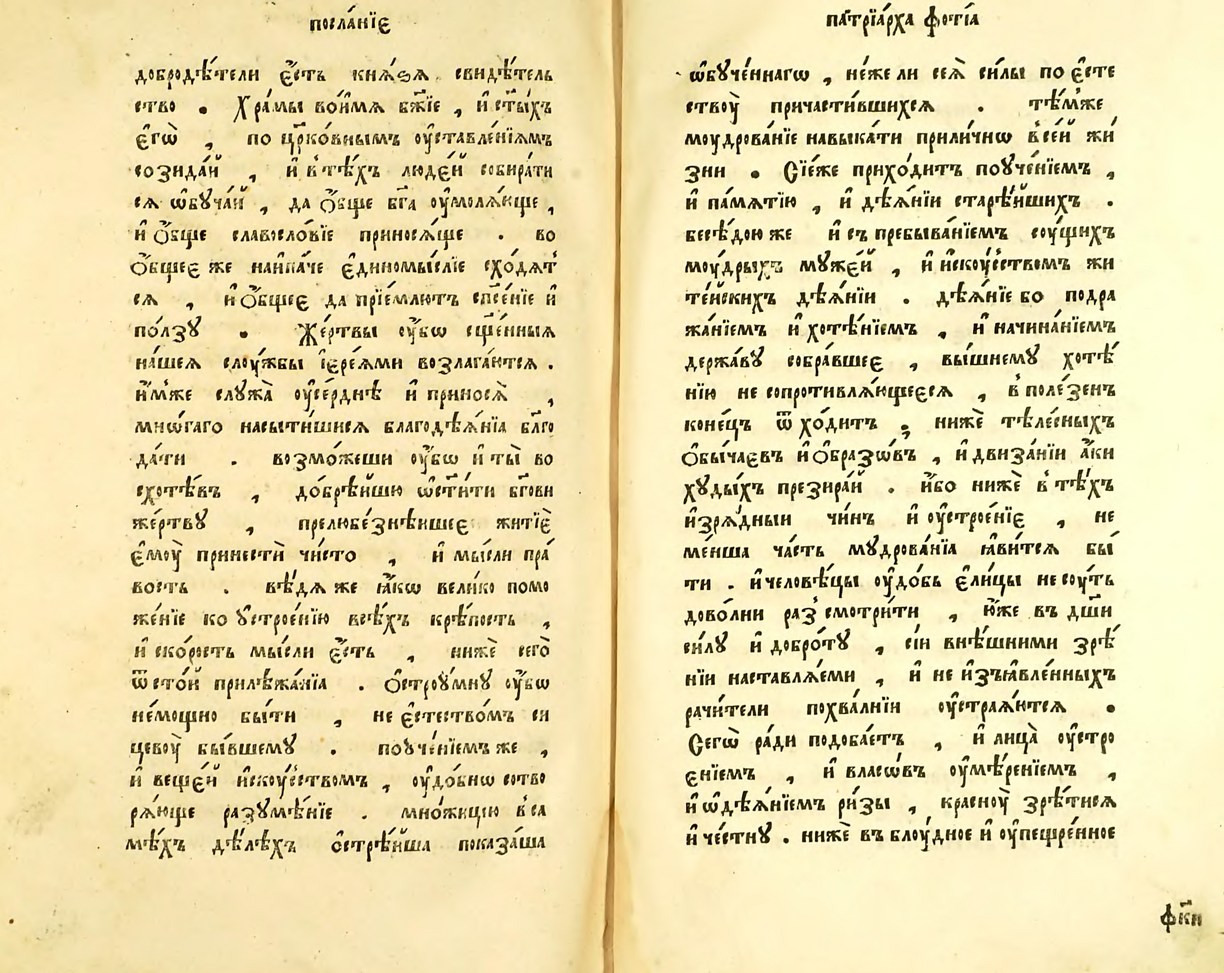 посла́нїє
добродѣ́тели є҆́сть кня́ѕя свидѣ́тель
ство . Хра́мы воимѧ бж҃їе , и҆ ст҃ы́хъ
є҆гѡ̀ , по цр҃ко́внымъ оу҆ставле́нїѧмъ
созида́й , и҆ в̾тѣ́хъ люде́й собира́ти
сѧ ѡ҆буча́й , да ѻ҆́бще бг҃а оу҆молѧ́юще ,
и҆ ѻ҆́бще славосло́вїе приносѧ́ще . во
ѻ҆́бщеє же наипа́че є҆диномы́слїе схо́дѧт̾
сѧ , и҆ ѻ҆́бщеє да прїе́млютъ спⷭ҇е́нїе и҆
по́лзꙋ . Же́ртвы оу҆́бѡ сщ҃е́нныѧ
на́шеѧ слоу́жбы і҆єре́ѧми возлага́ютсѧ .
и҆́м̾же слꙋжа̀ оу҆се́рднѣ и҆ приносѧ̀ ,
мнѡ́гаго насы́тишисѧ благодѣѧ́нїа бл҃го
да́ти . возмо́жеши оу҆́бѡ и҆ ты̀ во
схотѣ́въ , добрѣ́йшю ѡ҆ст҃и́ти бг҃ови
же́ртвꙋ , прелюбе́знѣйшеє житїѐ
є҆моу̀ принестѝ чи́сто , и҆ мы́сли пра́
вость . вѣ́дѧ же ꙗ҆́кѡ вели́ко помо
же́нїе ко ᲂустрое́нїю всѣ́хъ крѣ́пость ,
и҆ ско́рость мы́сли є҆́сть , нижѐ сего̀
ѿ сто́й прилѣжа́нїа . Ѻ҆строу́мнꙋ оу҆́бѡ
немо́щно бы́ти , не є҆стество́мъ си
цевоу̀ бы́вшемꙋ . поꙋче́нїемъ же ,
и҆ веще́й и҆скоу́ствомъ , оу҆до́бнѡ сотво
рѧ́юще разꙋмѣ́нїе . мно́жицїю в̾са
мѣ́хъ дѣ́лѣхъ ѻ҆стрѣ́йша показа́ша
патрїа́рха фо́тїа
ѡ҆бꙋче́ннагѡ , не́же ли сеѧ̀ си́лы по є҆сте
ствоу̀ причасти́вшихсѧ . тѣ́м̾же
моудрова́нїе навыка́ти прили́чнѡ в̾се́й жи́
зни . Сїе́же прихо́дитъ поꙋче́нїемъ ,
и҆ па́мѧтїю , и҆ дѣѧ́нїи старѣ́йшихъ .
бесѣ́дою же и҆ съ пребыва́нїемъ соу́щихъ
моу́дрыхъ муже́й , и҆ и҆скоу́ствомъ жи
те́йскихъ дѣѧ́нїи . дѣѧ́нїе бо подра
жа́нїемъ и҆ хотѣ́нїемъ , и҆ начина́нїемъ
держа́вꙋ собра́вшеє , вы́шнемꙋ хотѣ́
нїю не сопротивлѧ́ющеєсѧ , в̾ поле́зенъ
коне́цъ ѿ хо́дитъ ; нижѐ тѣле́сныхъ
ѻ҆бы́чаєвъ и҆ ѻ҆́бразѡвъ , и҆ двиза́нїи а҆́ки
хꙋды́хъ презира́й . и҆́бо нижѐ в̾ тѣ́хъ
и҆зрѧ́дныи чи́нъ и҆ оу҆строе́нїє , не
ме́нша ча́сть мꙋдрова́нїа ꙗ҆ви́тсѧ бы́
ти . и҆ человѣ́цы оу҆до́бь є҆ли́цы не соу́ть
дово́лни раз̾смотри́ти , ю҆́же въ дш҃и
си́лꙋ и҆ добро́тꙋ , сїи внѣ́шними зрѣ́
нїи наставлѧ́еми , и҆ не и҆з̾ꙗвле́нныхъ
рачи́тели похва́лнїи оу҆страѧ́ютсѧ .
Сегѡ̀ ра́ди подоба́етъ , и҆ лица̀ оу҆стро
є́нїемъ , и҆ власѡ́въ оу҆мѣ́ренїемъ ,
и҆ ѡ҆дѣѧ́нїемъ ри́зы , красноу̀ зрѣ́тисѧ
и҆ че́стнꙋ . нижѐ въ блоу́дное и҆ оу҆пещре́нное
фк҃и